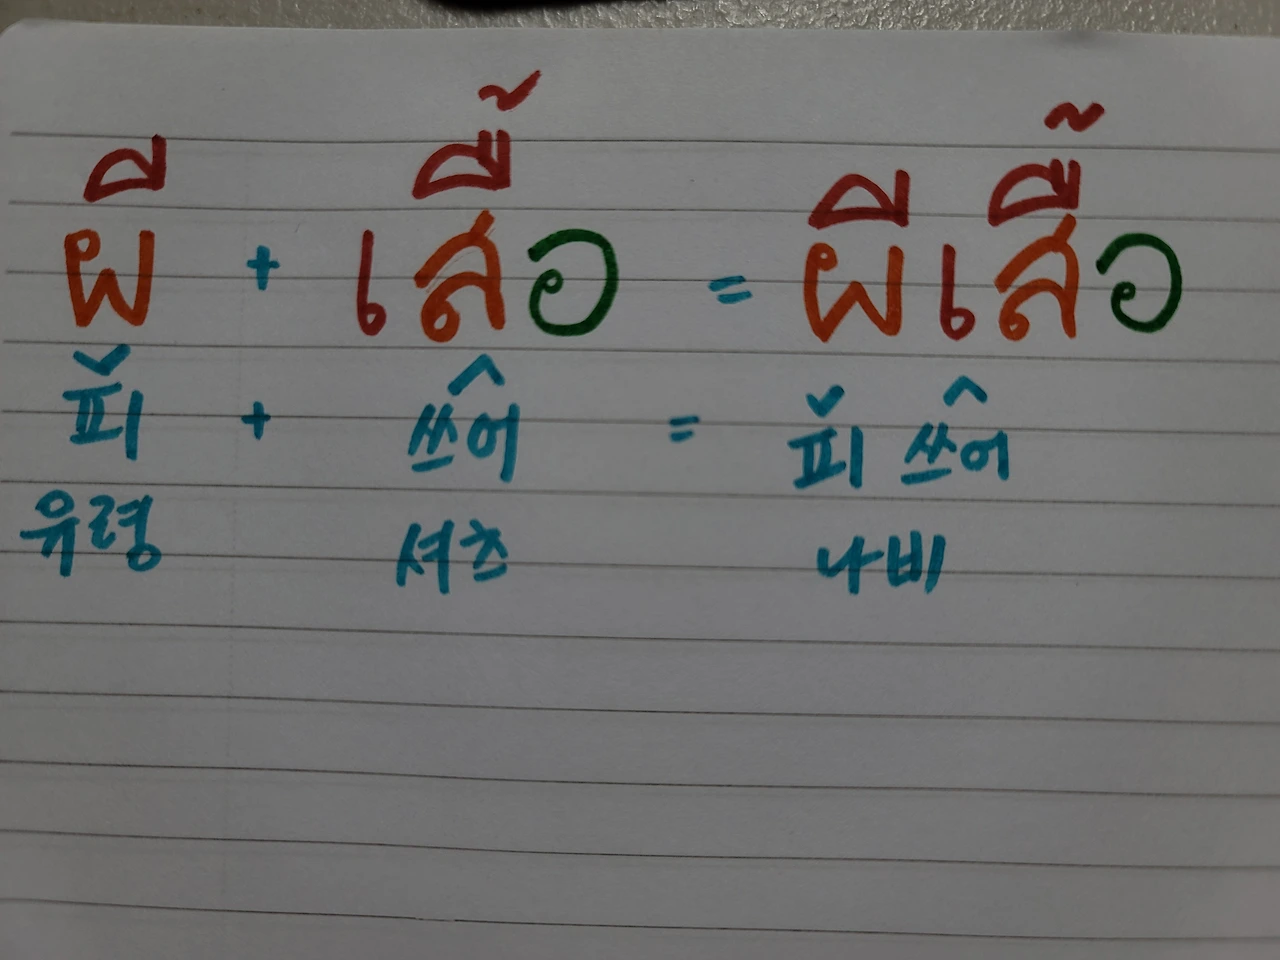 ผี + เสื้อ = ผีเสื้อ
피̌ + 쓰어̂ = 피̌ 쓰어̂
유령 셔츠 나비